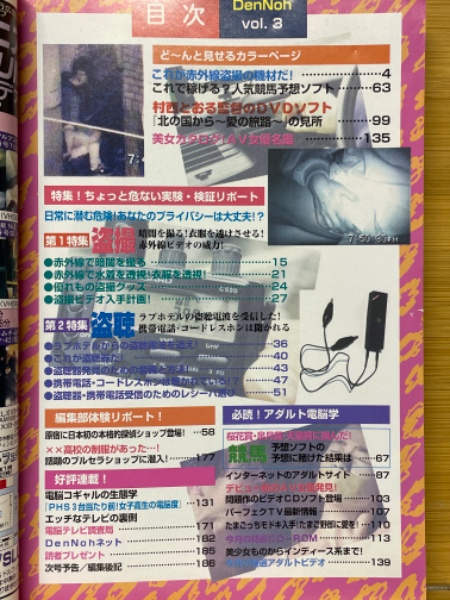 目次
DenNoh
vol. 3
ど～んと見せるカラーページ
これが赤外線盗撮の機材だ! 4
これで稼げる?人気競馬予想ソフト 63
村西とおる監督のDVDソフト
「北の国から～愛の旅路～」の見所 99
美女カタログ!AV女優名鑑 135
特集!ちょっと危ない実験・検証リポート
日常に潜む危険!あなたのプライバシーは大丈夫!?
第1特集
盗撮
暗闇を撮る!衣服を透けさせる!
赤外線ビデオの威力!
●赤外線で暗闇を撮る 15
●赤外線で水着を透視!衣服を透視! 21
●優れもの盗撮グッズ 24
●盗撮ビデオ入手計画! 27
第2特集
盗聴
ラブホテルの盗聴電波を受信した!
携帯電話・コードレスホンは聞かれる
●ラブホテルからの盗聴電波を追え! 36
●これが盗聴器だ! 40
●盗聴器発見のための装置と方法! 43
●携帯電話・コードレスホンは聴かれている!? 47
●盗聴器・携帯電話受信のためのレシーバ選び 51
7:50:50PM
編集部体験リポート!
原宿に日本初の本格的探偵ショップ登場! 58
××高校の制服があった…!
話題のブルセラショップに潜入! 177
好評連載!
電脳コギャルの生態学
「PHS3台当たり前!女子高生の電脳度」 131
エッチなテレビの裏側
電脳テレビ調査局 171
DenNohネット 182
読者プレゼント 185
次号予告/編集後記 186
必読!アダルト電脳学
競馬
予想ソフトの
予想に賭けた結果は 67
インターネットのアダルトサイト 87
問題作のビデオCDソフト登場 103
パーフェクTV最新情報 107
たまごっちモドキ入手「たまご野郎に愛を」 110
今月の特選CD-ROM 113
美少女ものからインディーズ系まで!
今月の特選アダルトビデオ 139